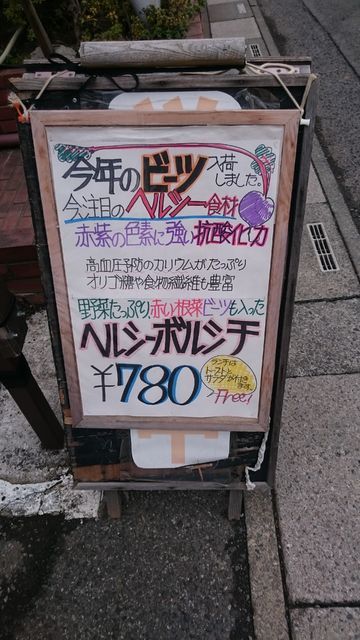 今年のビーツ入荷しました。
今、注目のヘルシー食材
赤紫の色素に強い抗酸化力
高血圧予防のカリウムがたっぷり
オリゴ糖や食物繊維も豊富
野菜たっぷり赤い根菜ビーツも入った
ヘルシーボルシチ
¥780
ランチは
トーストと
サラダが付きます。
Free!